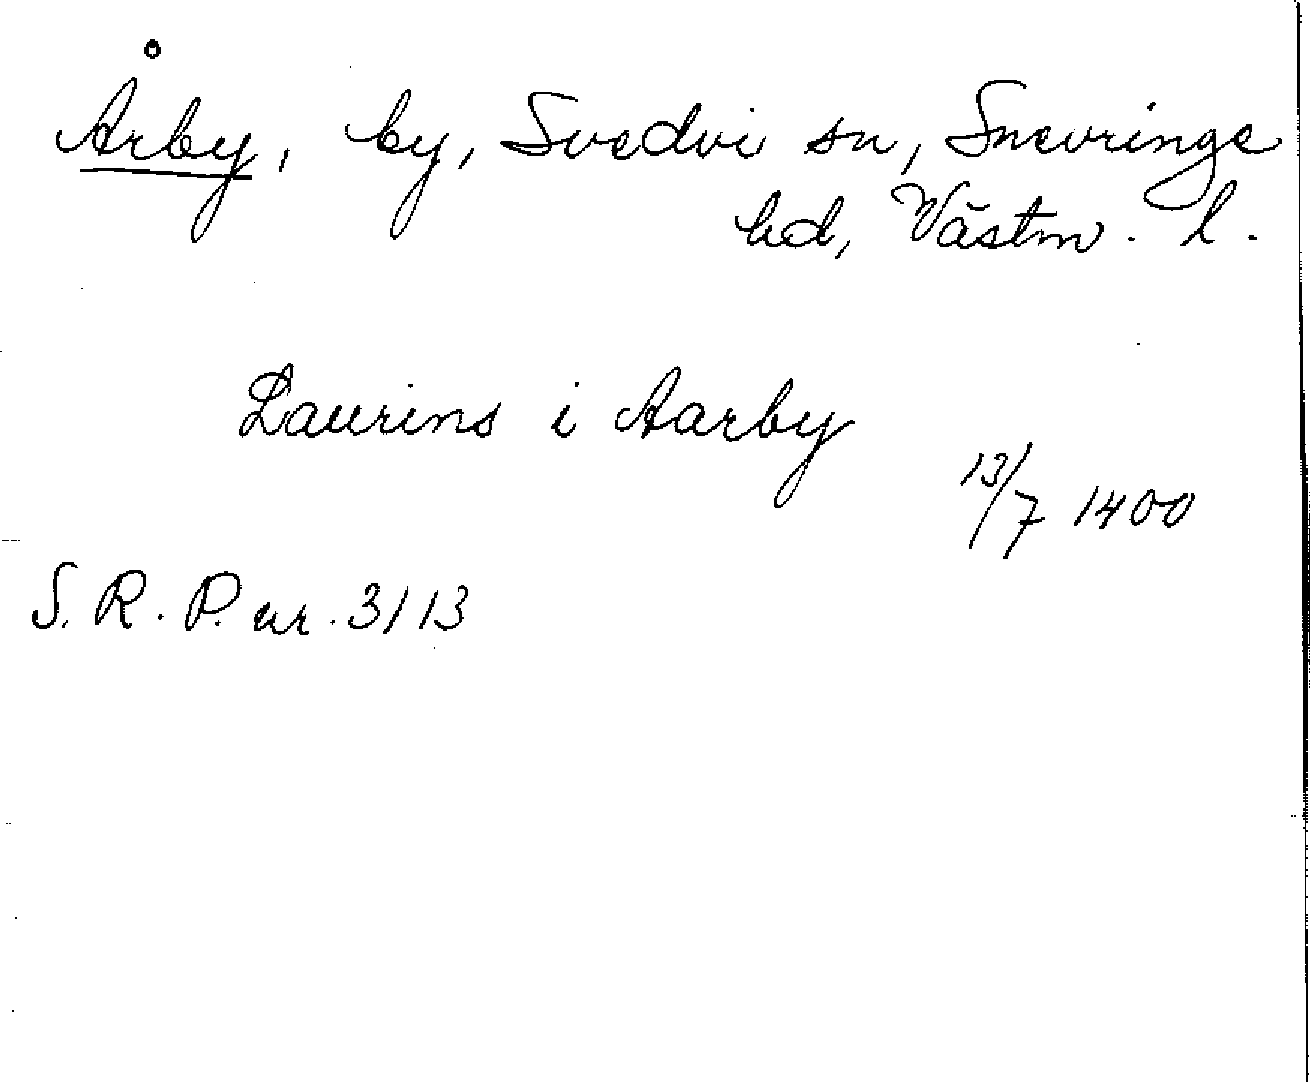 Årby, by, Svedvi sn, Snevringe
hd, Västm. l.
Laurins i Aarby
13/7 1400
S. R. P. nr. 3113